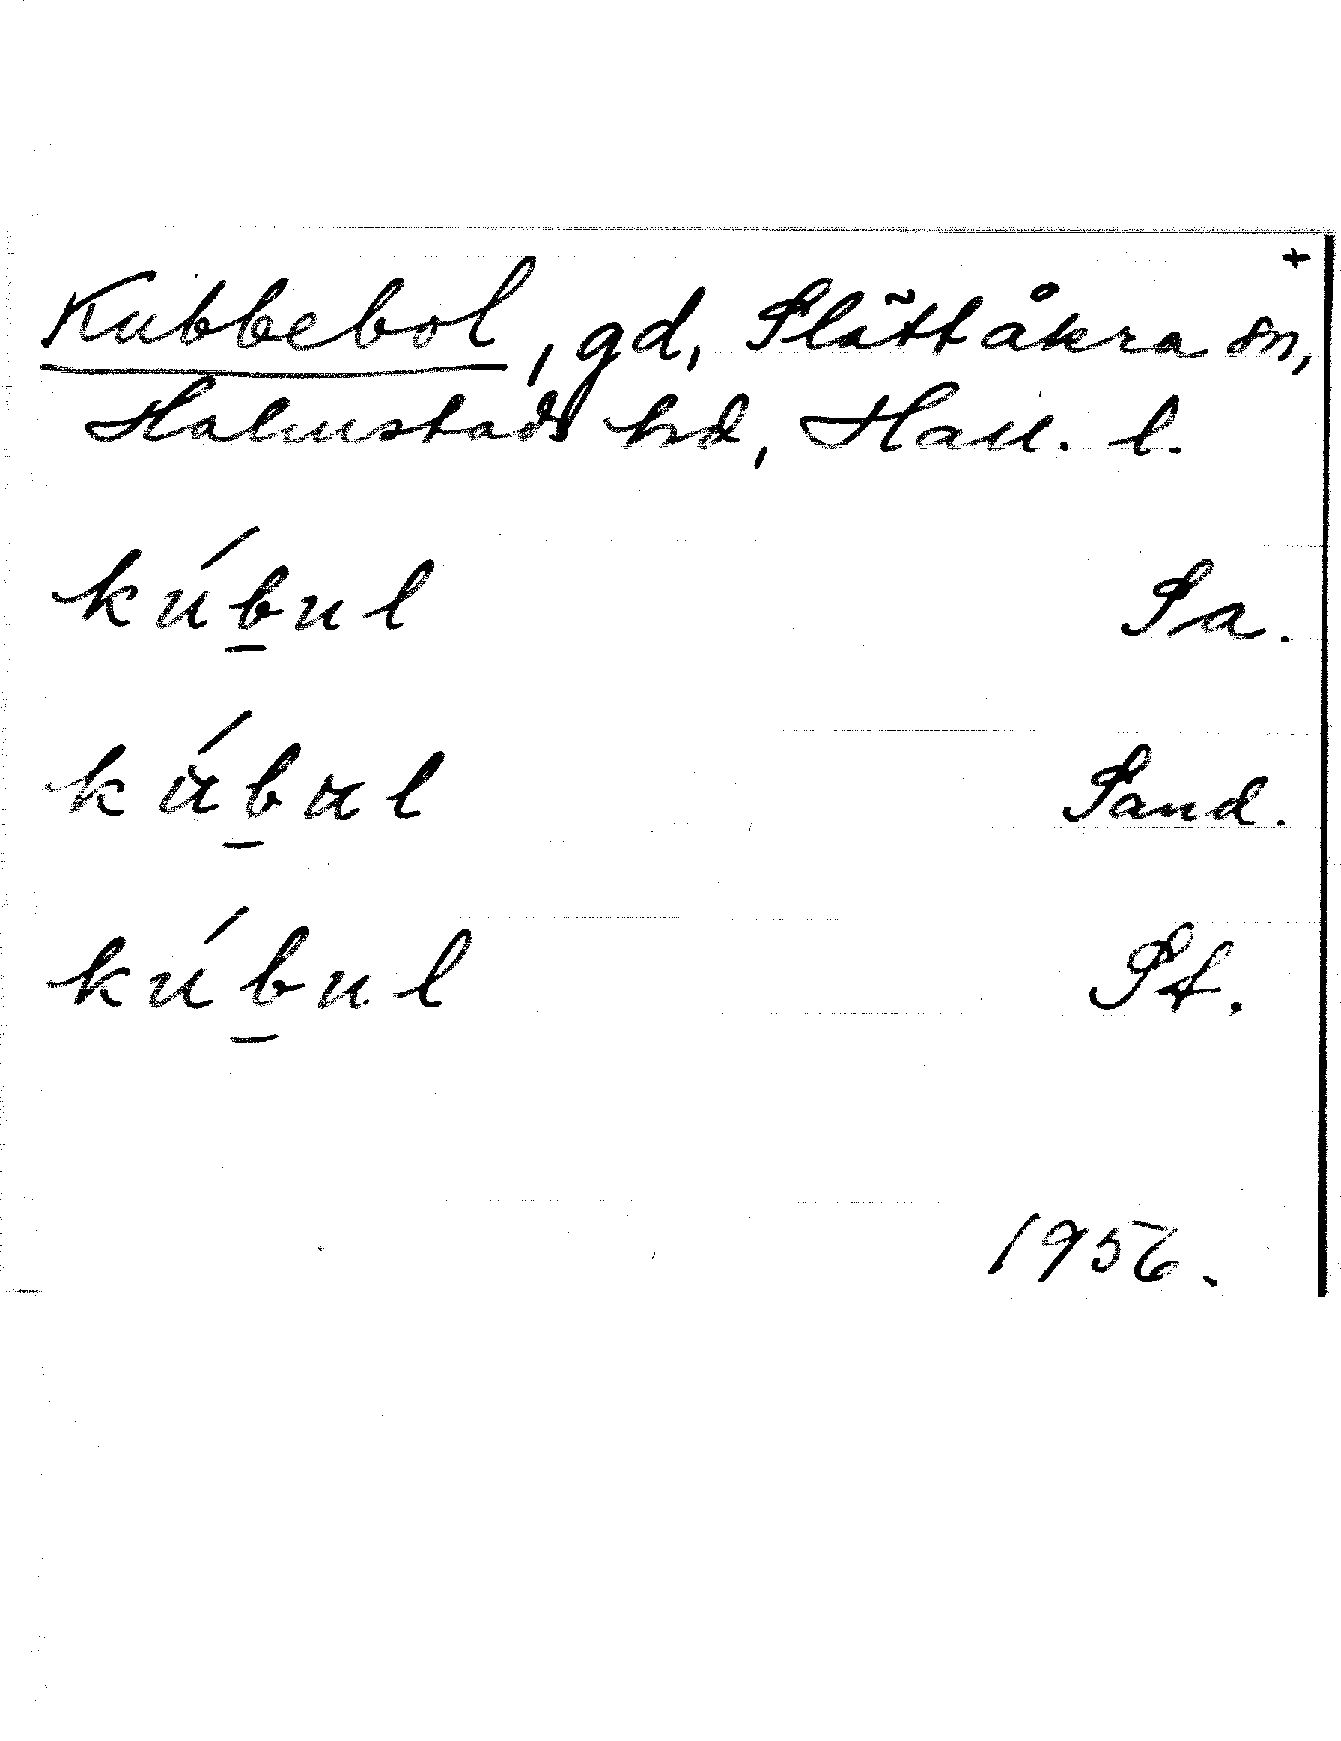 +
Kubbebol, gd, Slättåkra sn,
Halmstads hd, Hall. l.
kúb̲ul Sa.
kɑ́b̲ɑl Sand.
kúb̲ul St.
1956.